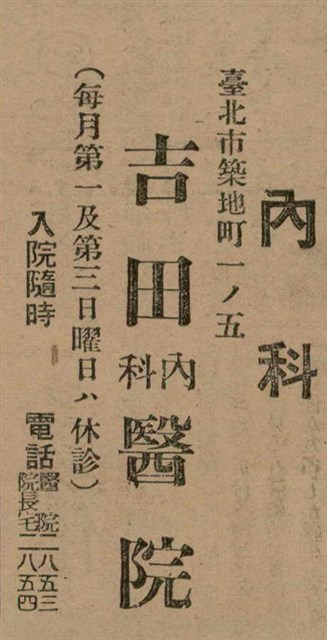 內科
臺北市築地町一ノ五
吉田內科醫院
(每月第一及第三日曜日ハ休診)
入院隨時 電話 醫院 二八五三
院長宅 二八五四